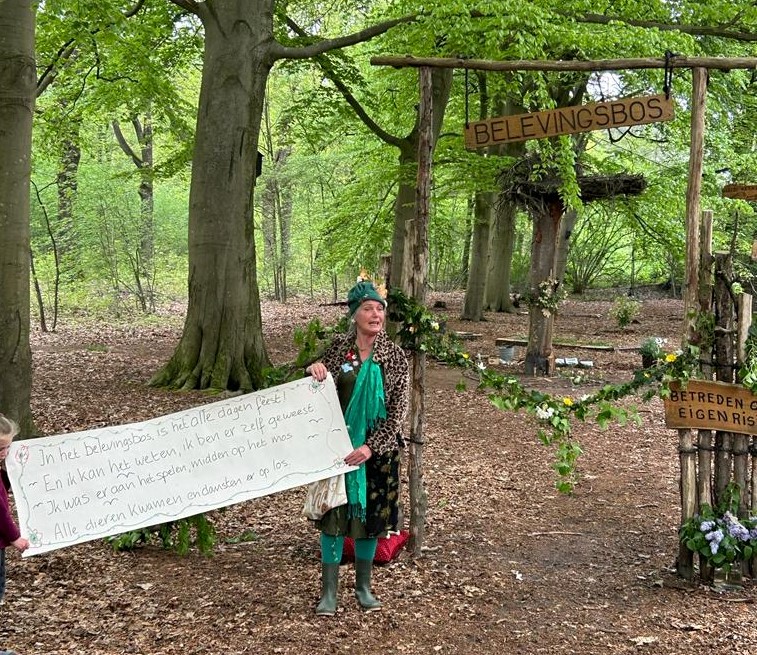 BELEVINGSBOS
In het Belevingsbos, is het alle dagen feest!
~ En ik kan het weten, ik ben er zelf geweest ~
~ Ik was er aan het spelen, midden op het mos ~
Alle dieren kwamen en dansten er op los.
BETREDEN
EIGEN RIS